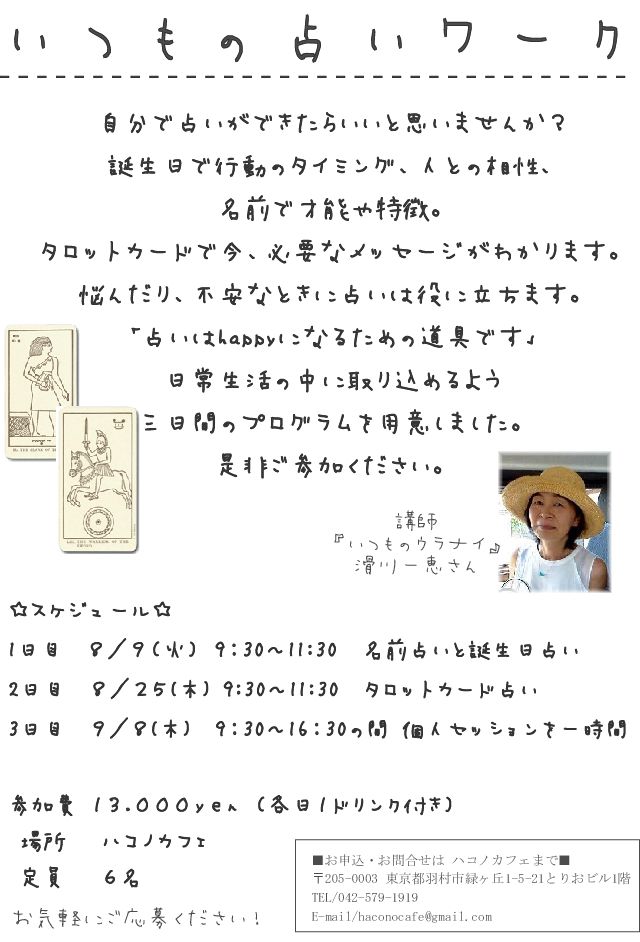 いつもの占いワーク
自分で占いができたらいいと思いませんか？
誕生日で行動のタイミング、人との相性、
名前で才能や特徴。
タロットカードで今、必要なメッセージがわかります。
悩んだり、不安なときに占いは役に立ちます。
「占いはhappyになるための道具です」
日常生活の中に取り込めるよう
三日間のプログラムを用意しました。
是非ご参加ください。
講師
『いつものウラナイ』
滑川一恵さん
☆スケジュール☆
1日目 8／9(火) 9:30〜11:30 名前占いと誕生日占い
2日目 8／25(木) 9:30〜11:30 タロットカード占い
3日目 9／8(木) 9:30〜16:30の間 個人セッションを一時間
参加費 13.000yen (各日1ドリンク付き)
場所 ハコノカフェ
定員 6名
お気軽にご応募ください！
■お申込・お問合せは ハコノカフェまで■
〒205-0003 東京都羽村市緑ヶ丘1-5-21とりおビル1階
TEL/042-579-1919
E-mail/haconocafe@gmail.com